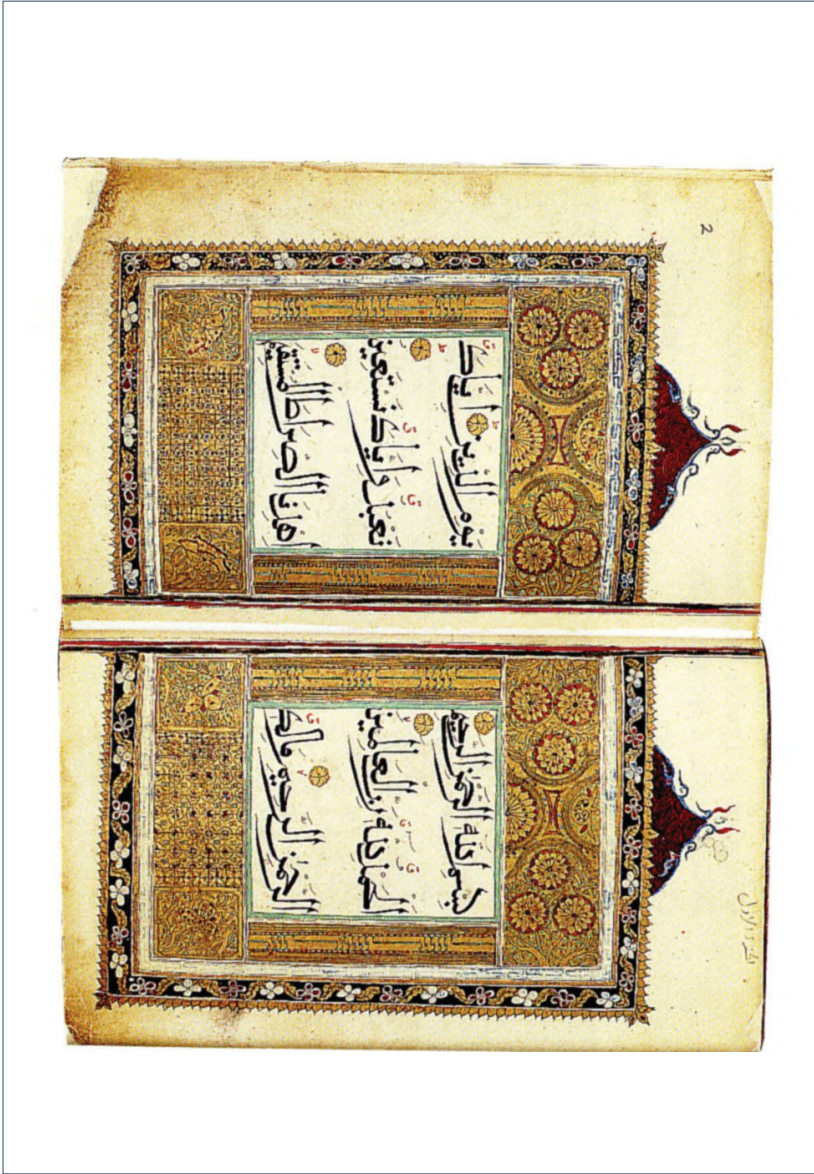 بسم الله الرحمن الرحيم
الحمد لله رب العالمين
الرحمن الرحيم ملك
يوم الدين اياك
نعبد واياك نستعين
اهدنا الصراط المستقيم
2